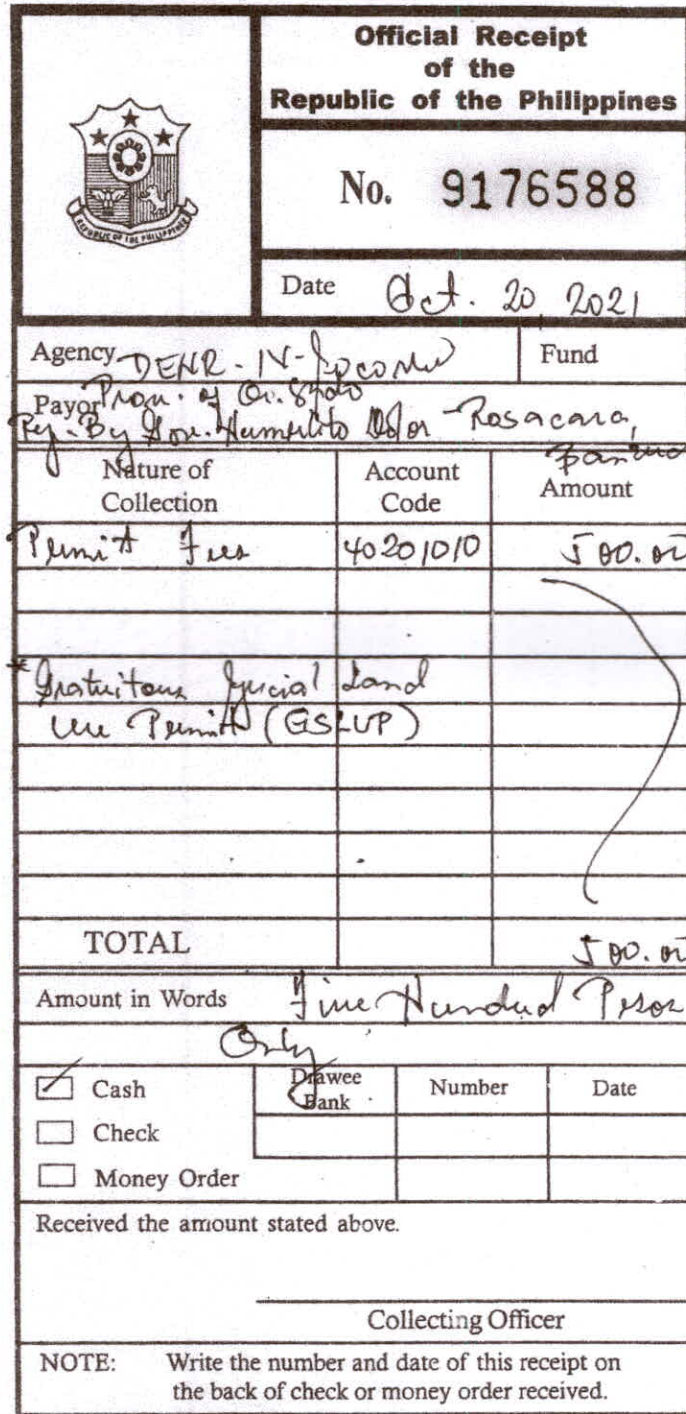 Official Receipt
of the
Republic of the Philippines
REPUBLIC OF THE PHILIPPINES
No. 9176588
Date Oct. 20, 2021
Agency DENR - IV-
Fund
Payor Prov. of Or. Mdo
Rep. By Gov. Humerlito Dolor - Rosacara,
Nature of Collection Account Code Amount
Permit Fees 40201010 500.00
*Gratuitous Special Land
Use Permit (GSLUP)
TOTAL 500.00
Amount in Words Five Hundred Pesos
Only
Cash Drawee Bank Number Date
Check
Money Order
Received the amount stated above.
Collecting Officer
NOTE: Write the number and date of this receipt on
the back of check or money order received.